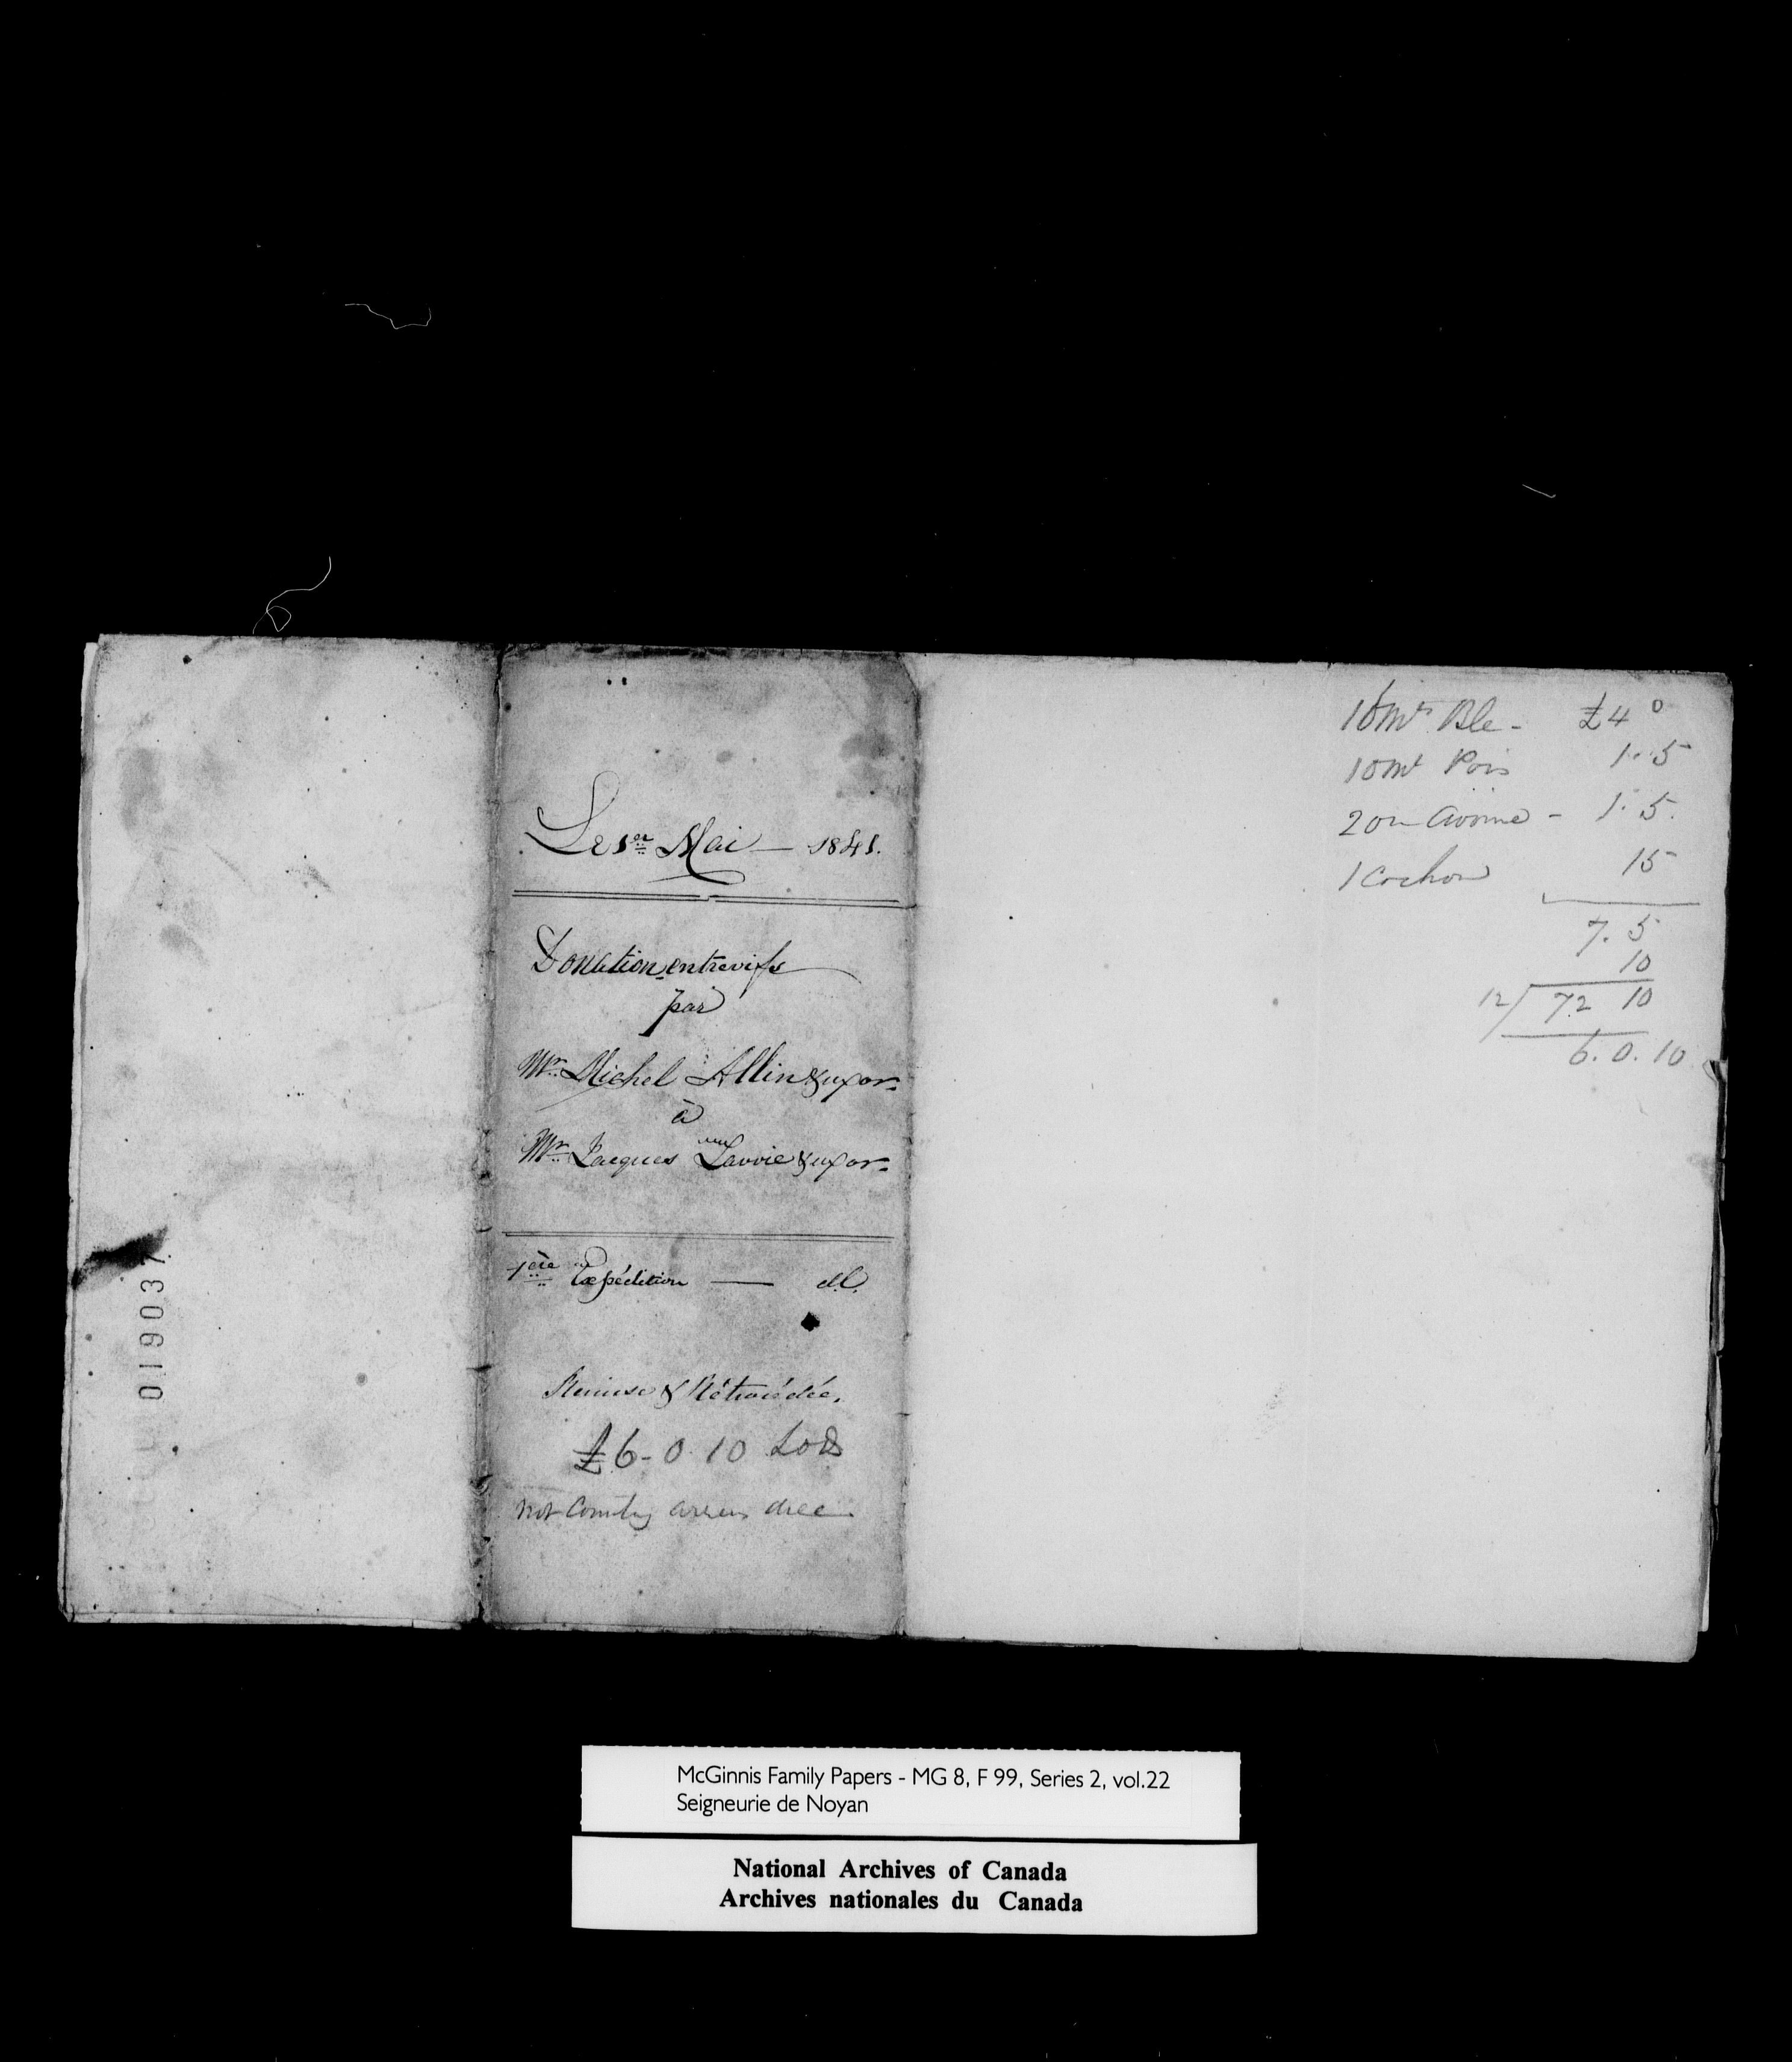 Le 1er Mai — 1841.
Donation entrevifs
par
Mr. Michel Allin & uxor
à
Mr. Jacques Lavoie & uxor
1ère Expédition — d.l.
Remise & Rétrocédée.
£6-0.10 Lods
not Counting arrears due
16 mts Ble - £4 0
10 mt Pois 1..5
20 m Avoine - 1.5.
1 Cochon 15
7.5
10
12/ 72 10
6.0.10
019037
McGinnis Family Papers - MG 8, F 99, Series 2, vol.22
Seigneurie de Noyan
National Archives of Canada
Archives nationales du Canada